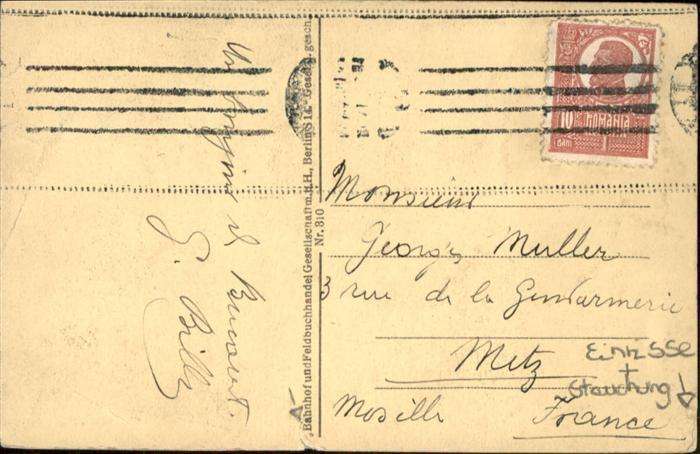 Un bonjour de Bucarest.
G. Billy
"Bahnhof und Feldbuchhandel Gesellschaft m.b.H., Berlin S 14." Gesetzl. gesch.
Nr. 310
10 ROMANIA
BANI
Monsieur
Georges Muller
3 rue de la Gendarmerie
Metz
Moselle
France
Einrisse
+
Stauchung